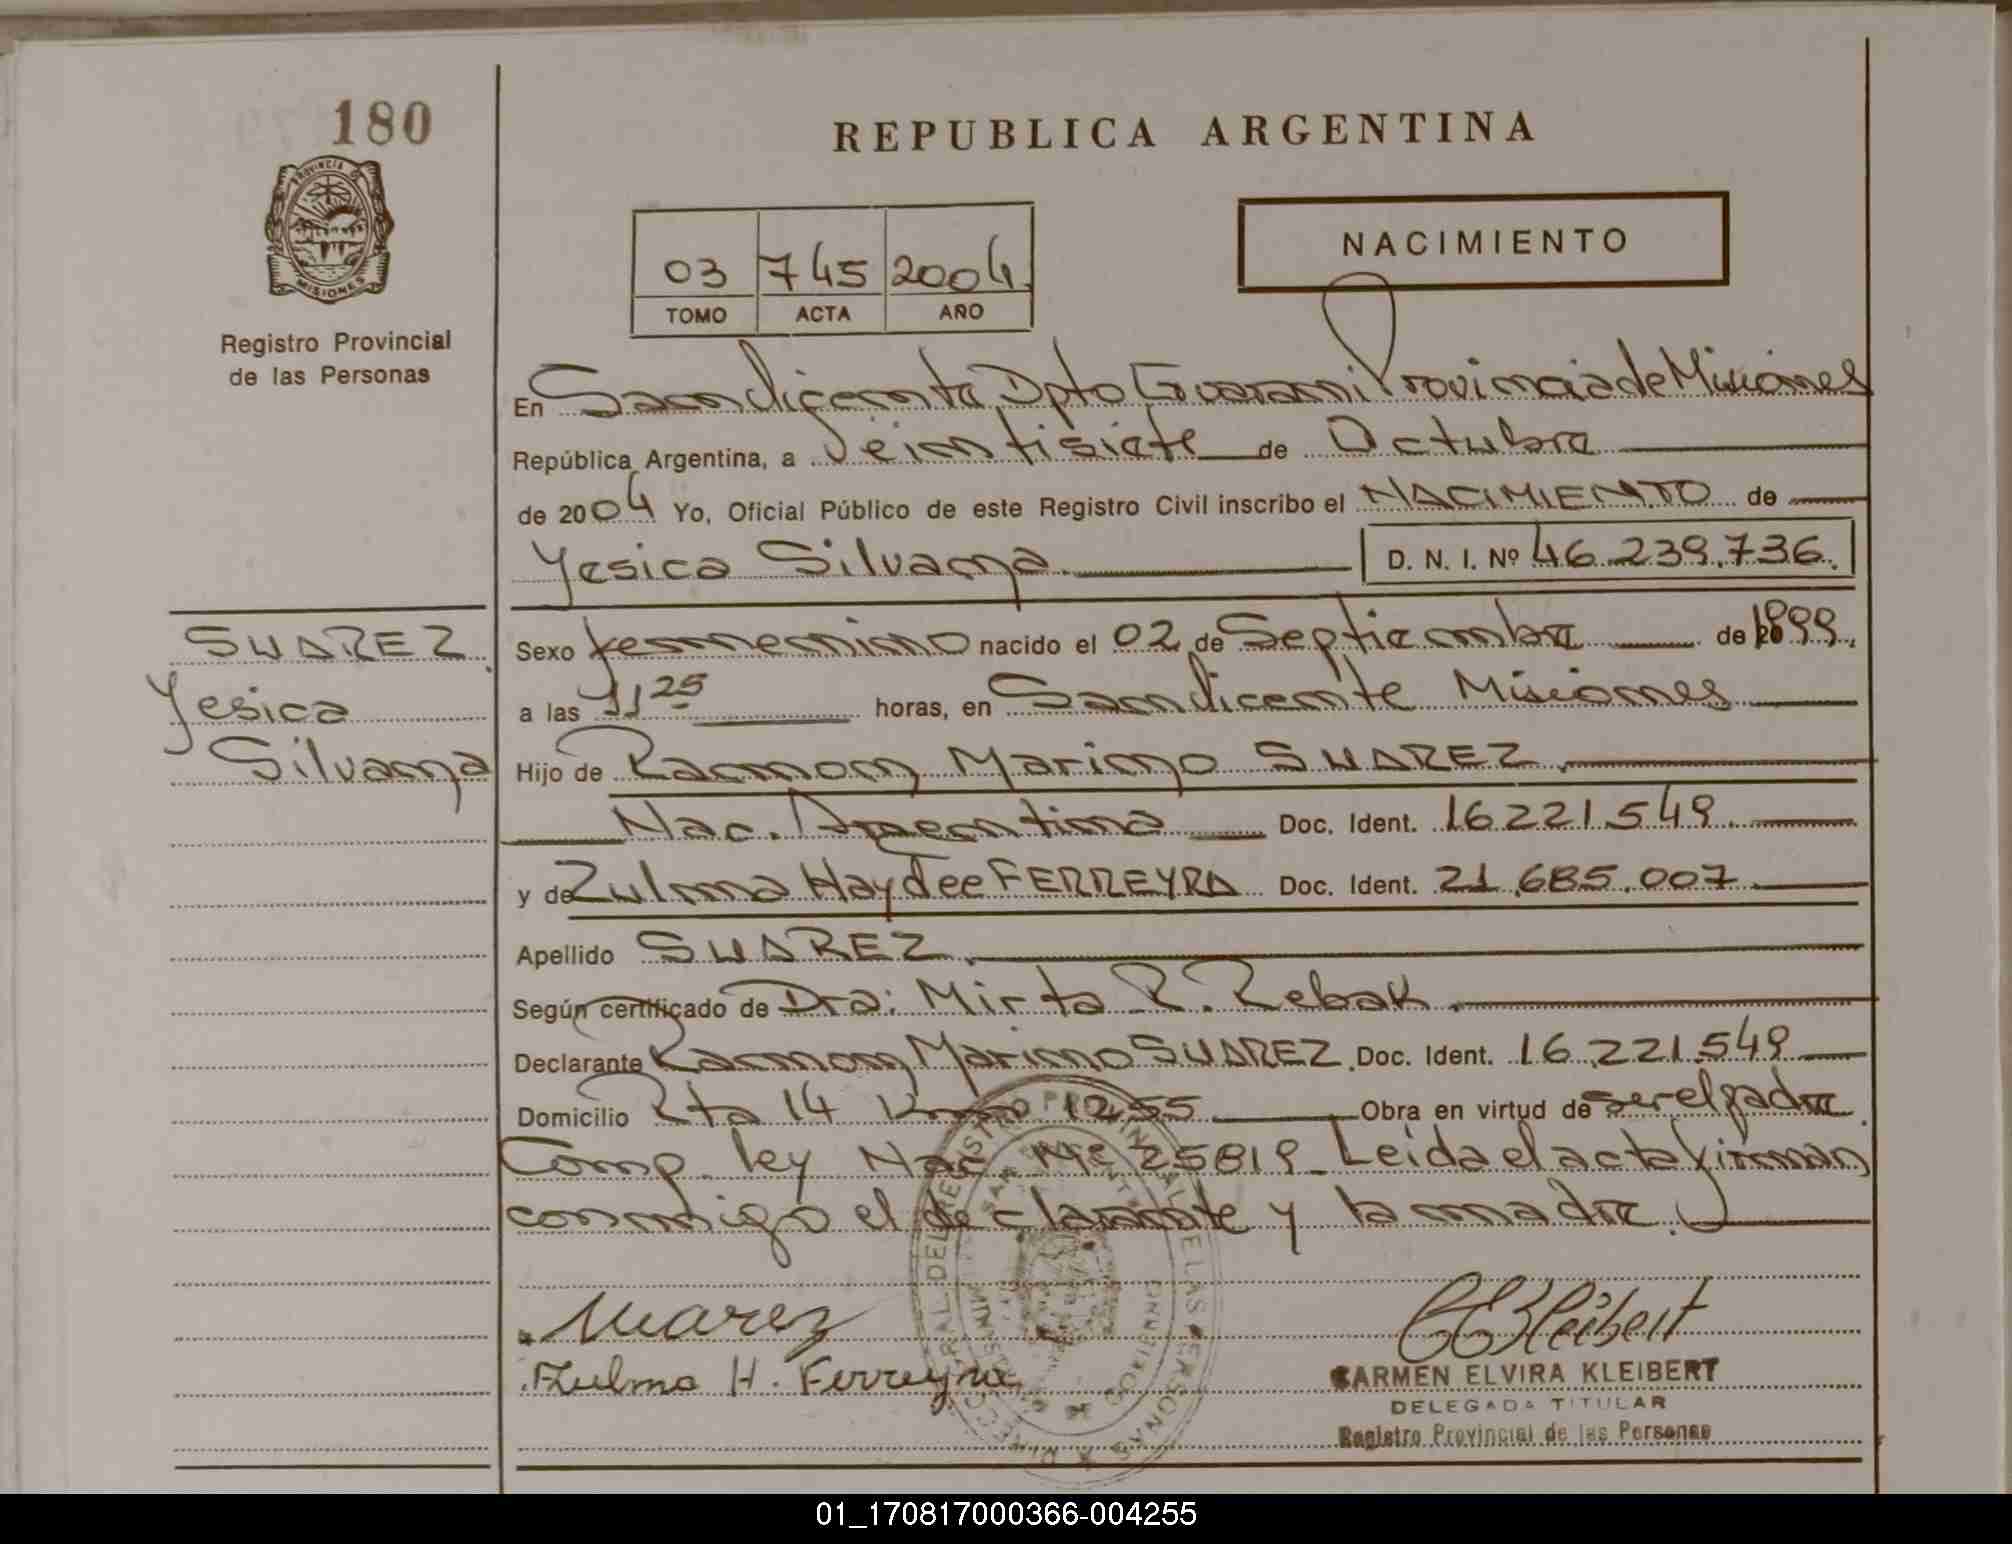 180
PROVINCIA D
MISIONES
Registro Provincial
de las Personas
REPUBLICA ARGENTINA
03 745 2004
TOMO ACTA AÑO
NACIMIENTO
En San Vicente Dpto Guarani Provincia de Misiones
República Argentina, a Veintisiete de Octubre
de 2004 Yo, Oficial Público de este Registro Civil inscribo el NACIMIENTO de
Yesica Silvana
D. N. I. Nº 46.239.736.
SUAREZ
Yesica
Silvana
Sexo femenino nacido el 02 de Septiembre de 1999.
a las 11 25 horas, en San Vicente Misiones
Hijo de Ramon Marino SUAREZ
Nac. Argentina Doc. Ident. 16.221.549
y de Zulma Haydee FERREYRA Doc. Ident. 21.685.007
Apellido SUAREZ
Según certificado de Dra: Mirta R. Rebak
Declarante Ramon Marino SUAREZ. Doc. Ident. 16.221.549
Domicilio Rta 14 Km 1255 Obra en virtud de ser el padre
Comp. ley Nac Nº 25819 Leida el acta firman
conmigo el declarante y la madre.
Suarez
Zulma H. Ferreyra
CEKleibert
CARMEN ELVIRA KLEIBERT
DELEGADA TITULAR
Registro Provincial de las Personas
01_170817000366-004255